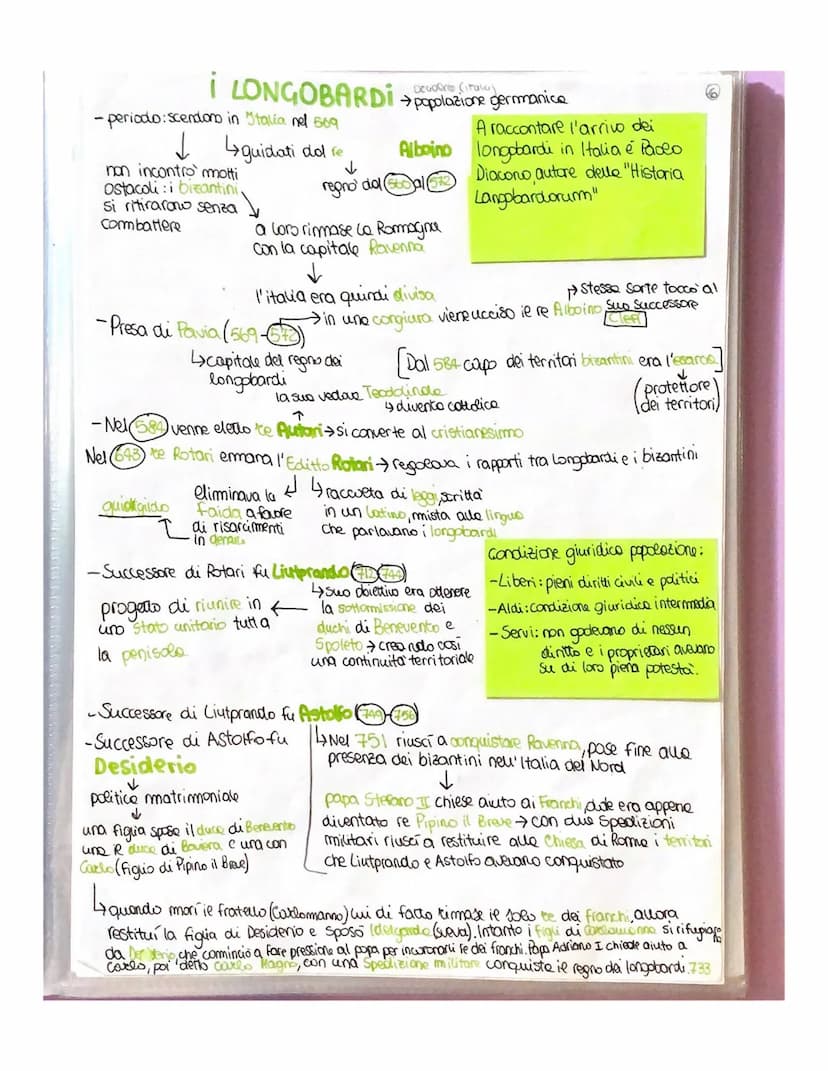 i LONGOBARDi → popolazione germanica
6
- periodo: scendono in Italia nel 569
guidati dal re Alboino
regnò dal 560 al 572
non incontrò molti
ostacoli: i bizantini
si ritirarono senza
combattere
a loro rimase la Romagna
con la capitale Ravenna
A raccontare l'arrivo dei
longobardi in Italia é Paolo
Diacono, autore della "Historia
Langobardorum"
l'italia era quindi divisa
- Presa di Pavia (569-572)
→ in una congiura viene ucciso il re Alboino
stessa sorte toccò al
suo successore
Clefi
capitale del regno dei
longobardi
[Dal 584 capo dei territori bizantini era l'esarca]
(protettore
dei territori)
la sua vedova Teodolinda
diventa cattolica
- Nel 584 venne eletto re Autari → si converte al cristianesimo
Nel 643 re Rotari emana l'Editto Rotari → regolava i rapporti tra longobardi e i bizantini
eliminava la
faida a favore
di risarcimenti
in denaro
guidrigildo
raccolta di leggi, scritta
in un latino, mista alla lingua
che parlavano i longobardi
- Successore di Rotari fu Liutprando (712-744)
suo obiettivo era ottenere
la sottomissione dei
duchi di Benevento e
Spoleto → creando così
una continuità territoriale
progetto di riunire in
uno stato unitario tutta
la penisola
Condizione giuridica popolazione:
- Liberi: pieni diritti civili e politici
- Aldi: condizione giuridica intermedia
- Servi: non godevano di nessun
diritto e i proprietari avevano
su di loro piena potestà.
- Successore di Liutprando fu Astolfo (749-756)
Nel 751 riuscì a conquistare Ravenna, pose fine alla
presenza dei bizantini nell'Italia del Nord
papa Stefano II chiese aiuto ai Franchi, dove era appena
diventato re Pipino il Breve → con due spedizioni
militari riuscì a restituire alla Chiesa di Roma i territori
che Liutprando e Astolfo avevano conquistato
- Successore di Astolfo fu
Desiderio
politica matrimoniale
una figlia sposa il duca di Benevento
una il duca di Bavera e una con
Carlo (figlio di Pipino il Breve)
quando morì il fratello (Carlomanno) lui di fatto rimase il solo re dei franchi, allora
restituì la figlia di Desiderio e sposò Ildegarda (sveva). Intanto i figli di Carlomanno si rifugiano
da Desiderio che cominciò a fare pressione al papa per incoronarli re dei franchi. Papa Adriano I chiede aiuto a
Carlo, poi detto Carlo Magno, con una spedizione militare conquista il regno dei longobardi. 733